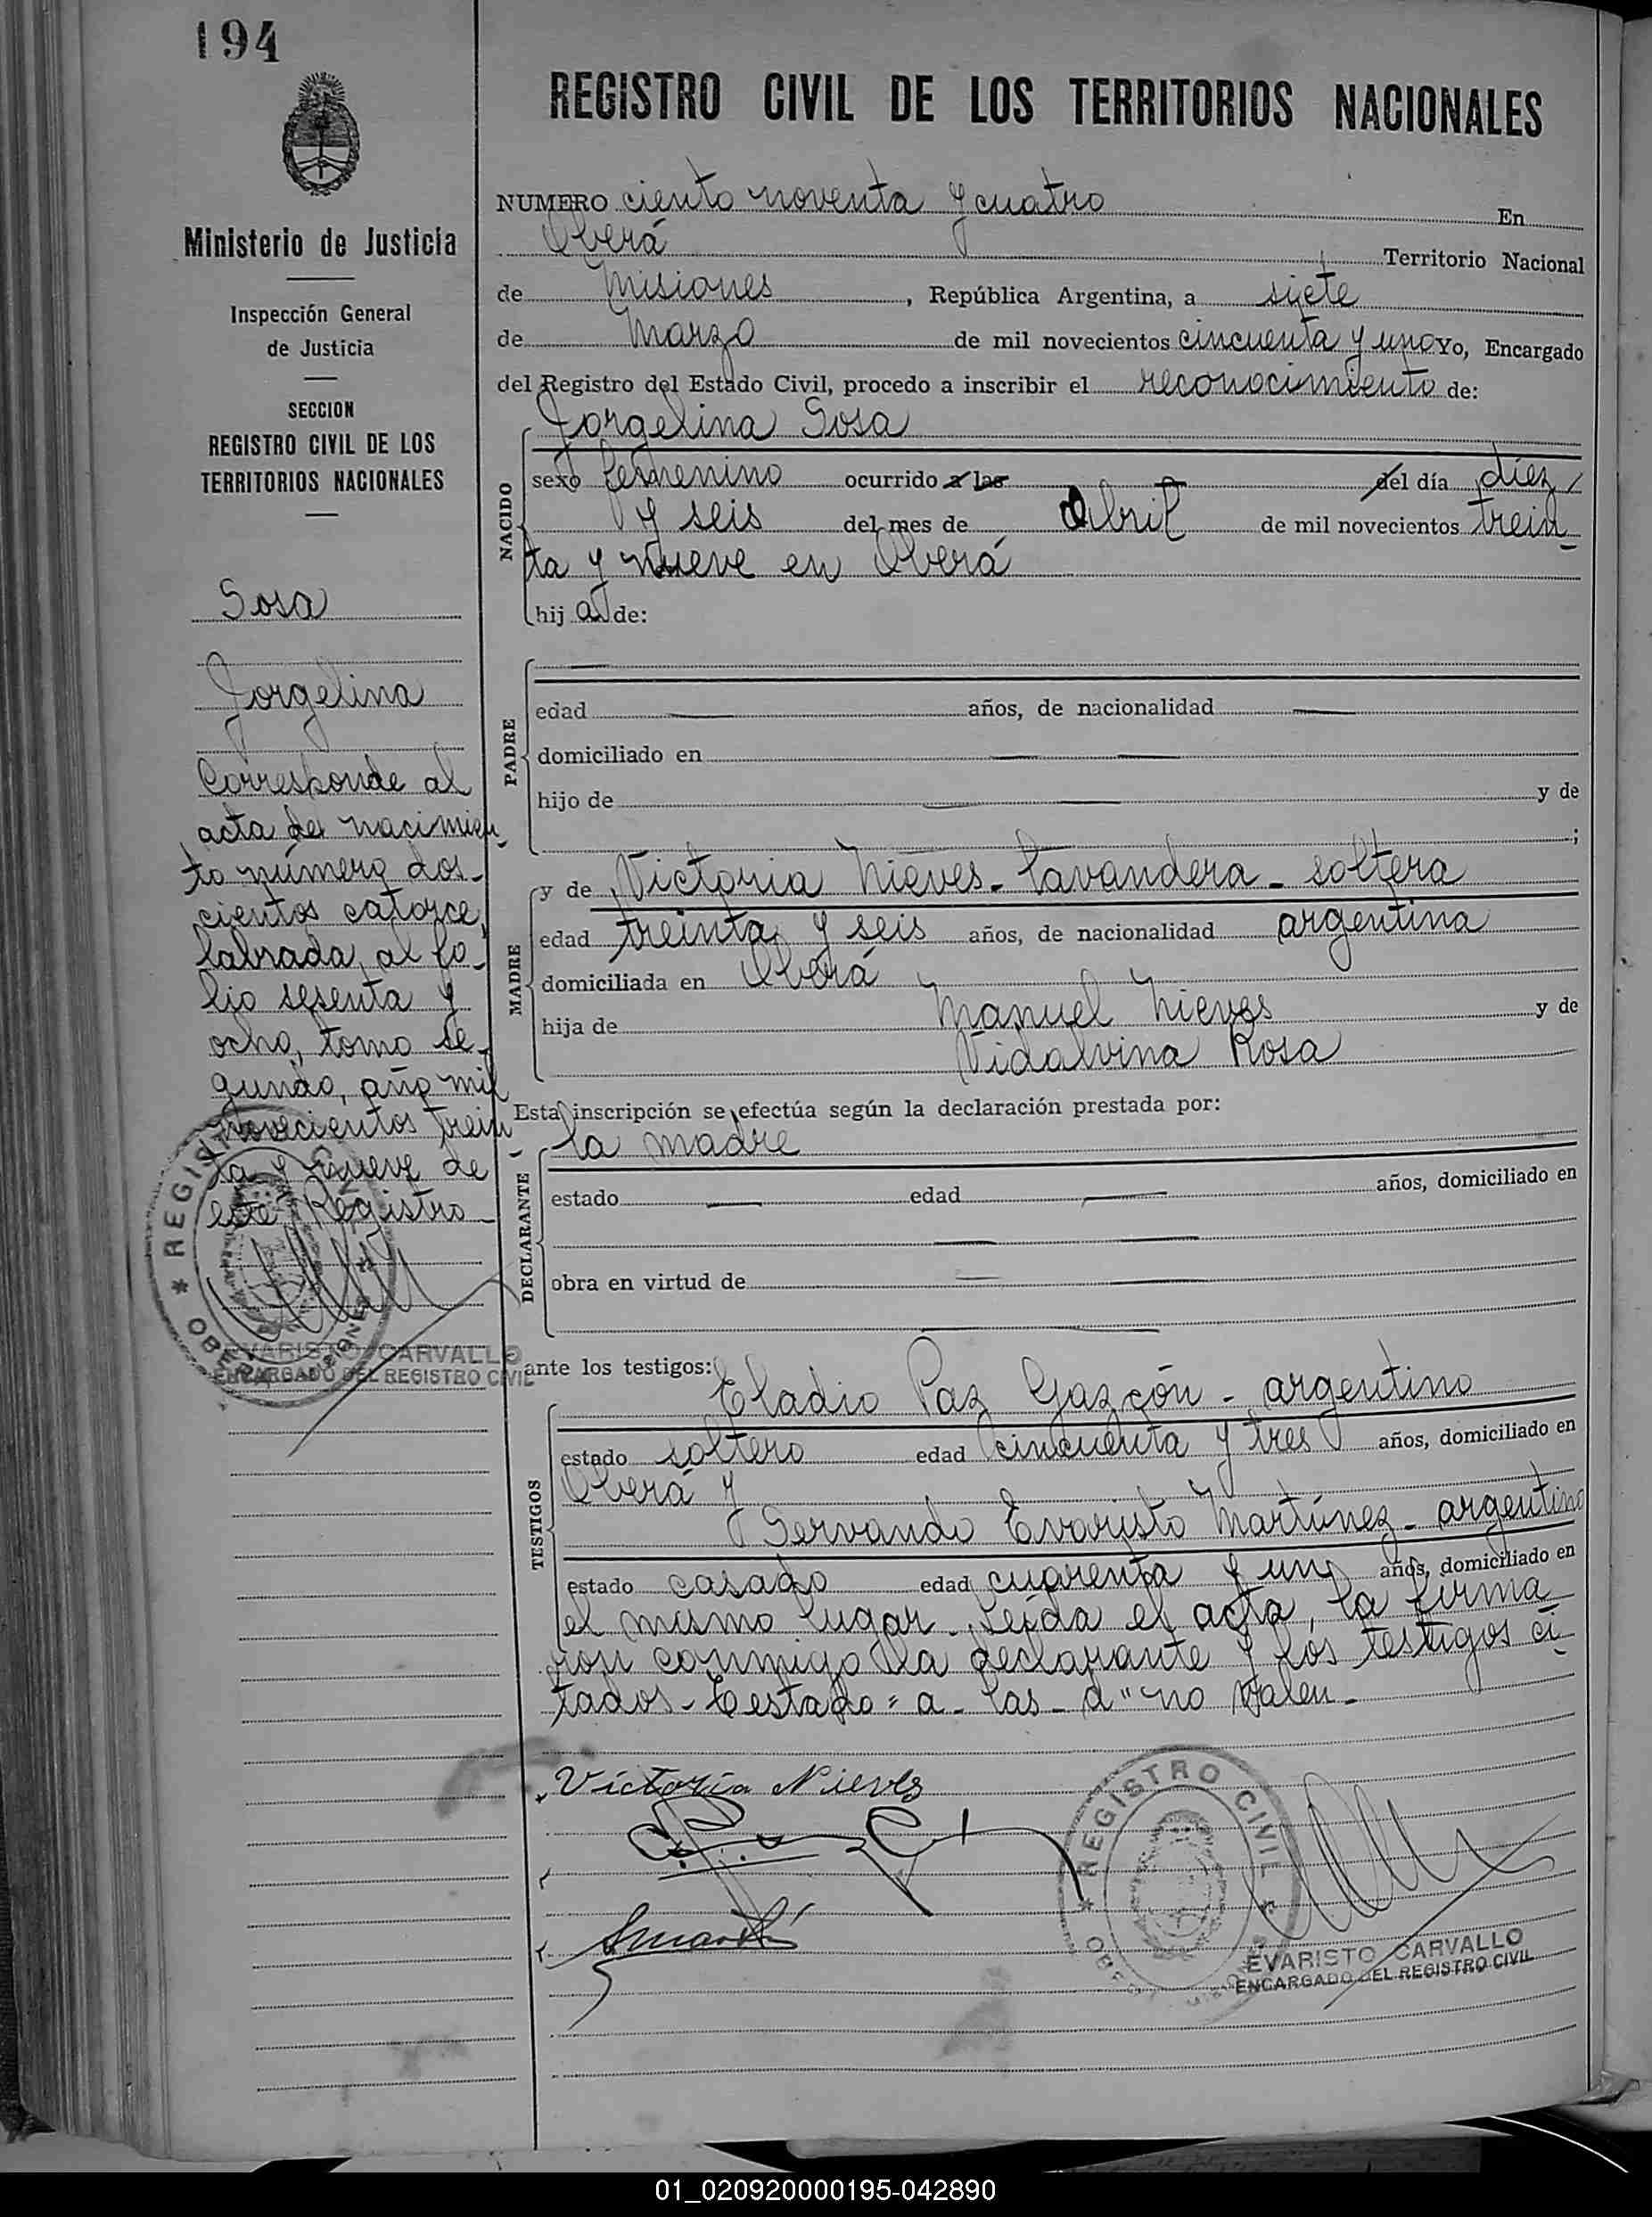 194
Ministerio de Justicia
Inspección General
de Justicia
SECCION
REGISTRO CIVIL DE LOS
TERRITORIOS NACIONALES
Sosa
Jorgelina
Corresponde al
acta de nacimien
to número dos-
cientos catorce,
labrada al fo-
lio sesenta y
ocho, tomo se-
gundo, año mil
novecientos trein
ta y nueve de
este Registro
REGISTRO CIVIL
OBERA MISIONES
EVARISTO CARVALLO
ENCARGADO DEL REGISTRO CIVIL
REGISTRO CIVIL DE LOS TERRITORIOS NACIONALES
NUMERO ciento noventa y cuatro En
Oberá Territorio Nacional
de Misiones, República Argentina, a siete
de Marzo de mil novecientos cincuenta y uno Yo, Encargado
del Registro del Estado Civil, procedo a inscribir el reconocimiento de:
Jorgelina Sosa
NACIDO
sexo femenino ocurrido a las del día diez
y seis del mes de Abril de mil novecientos trein
ta y nueve en Oberá
hij a de:
PADRE
edad años, de nacionalidad
domiciliado en
hijo de y de
;
MADRE
y de Victoria Nieves - lavandera - soltera
edad treinta y seis años, de nacionalidad argentina
domiciliada en Oberá
hija de Manuel Nieves y de
Vidalvina Rosa
Esta inscripción se efectúa según la declaración prestada por:
la madre
DECLARANTE
estado edad años, domiciliado en
obra en virtud de
ante los testigos:
Eladio Paz Gazcón - argentino
TESTIGOS
estado soltero edad cincuenta y tres años, domiciliado en
Oberá y
Servando Evaristo Martínez - argentino
estado casado edad cuarenta y un años, domiciliado en
el mismo lugar. Leída el acta, la firma
ron conmigo la declarante y los testigos ci
tados - Testado = a - las - d" no valen -
Victoria Nieves
REGISTRO CIVIL
EVARISTO CARVALLO
ENCARGADO DEL REGISTRO CIVIL
01_020920000195-042890